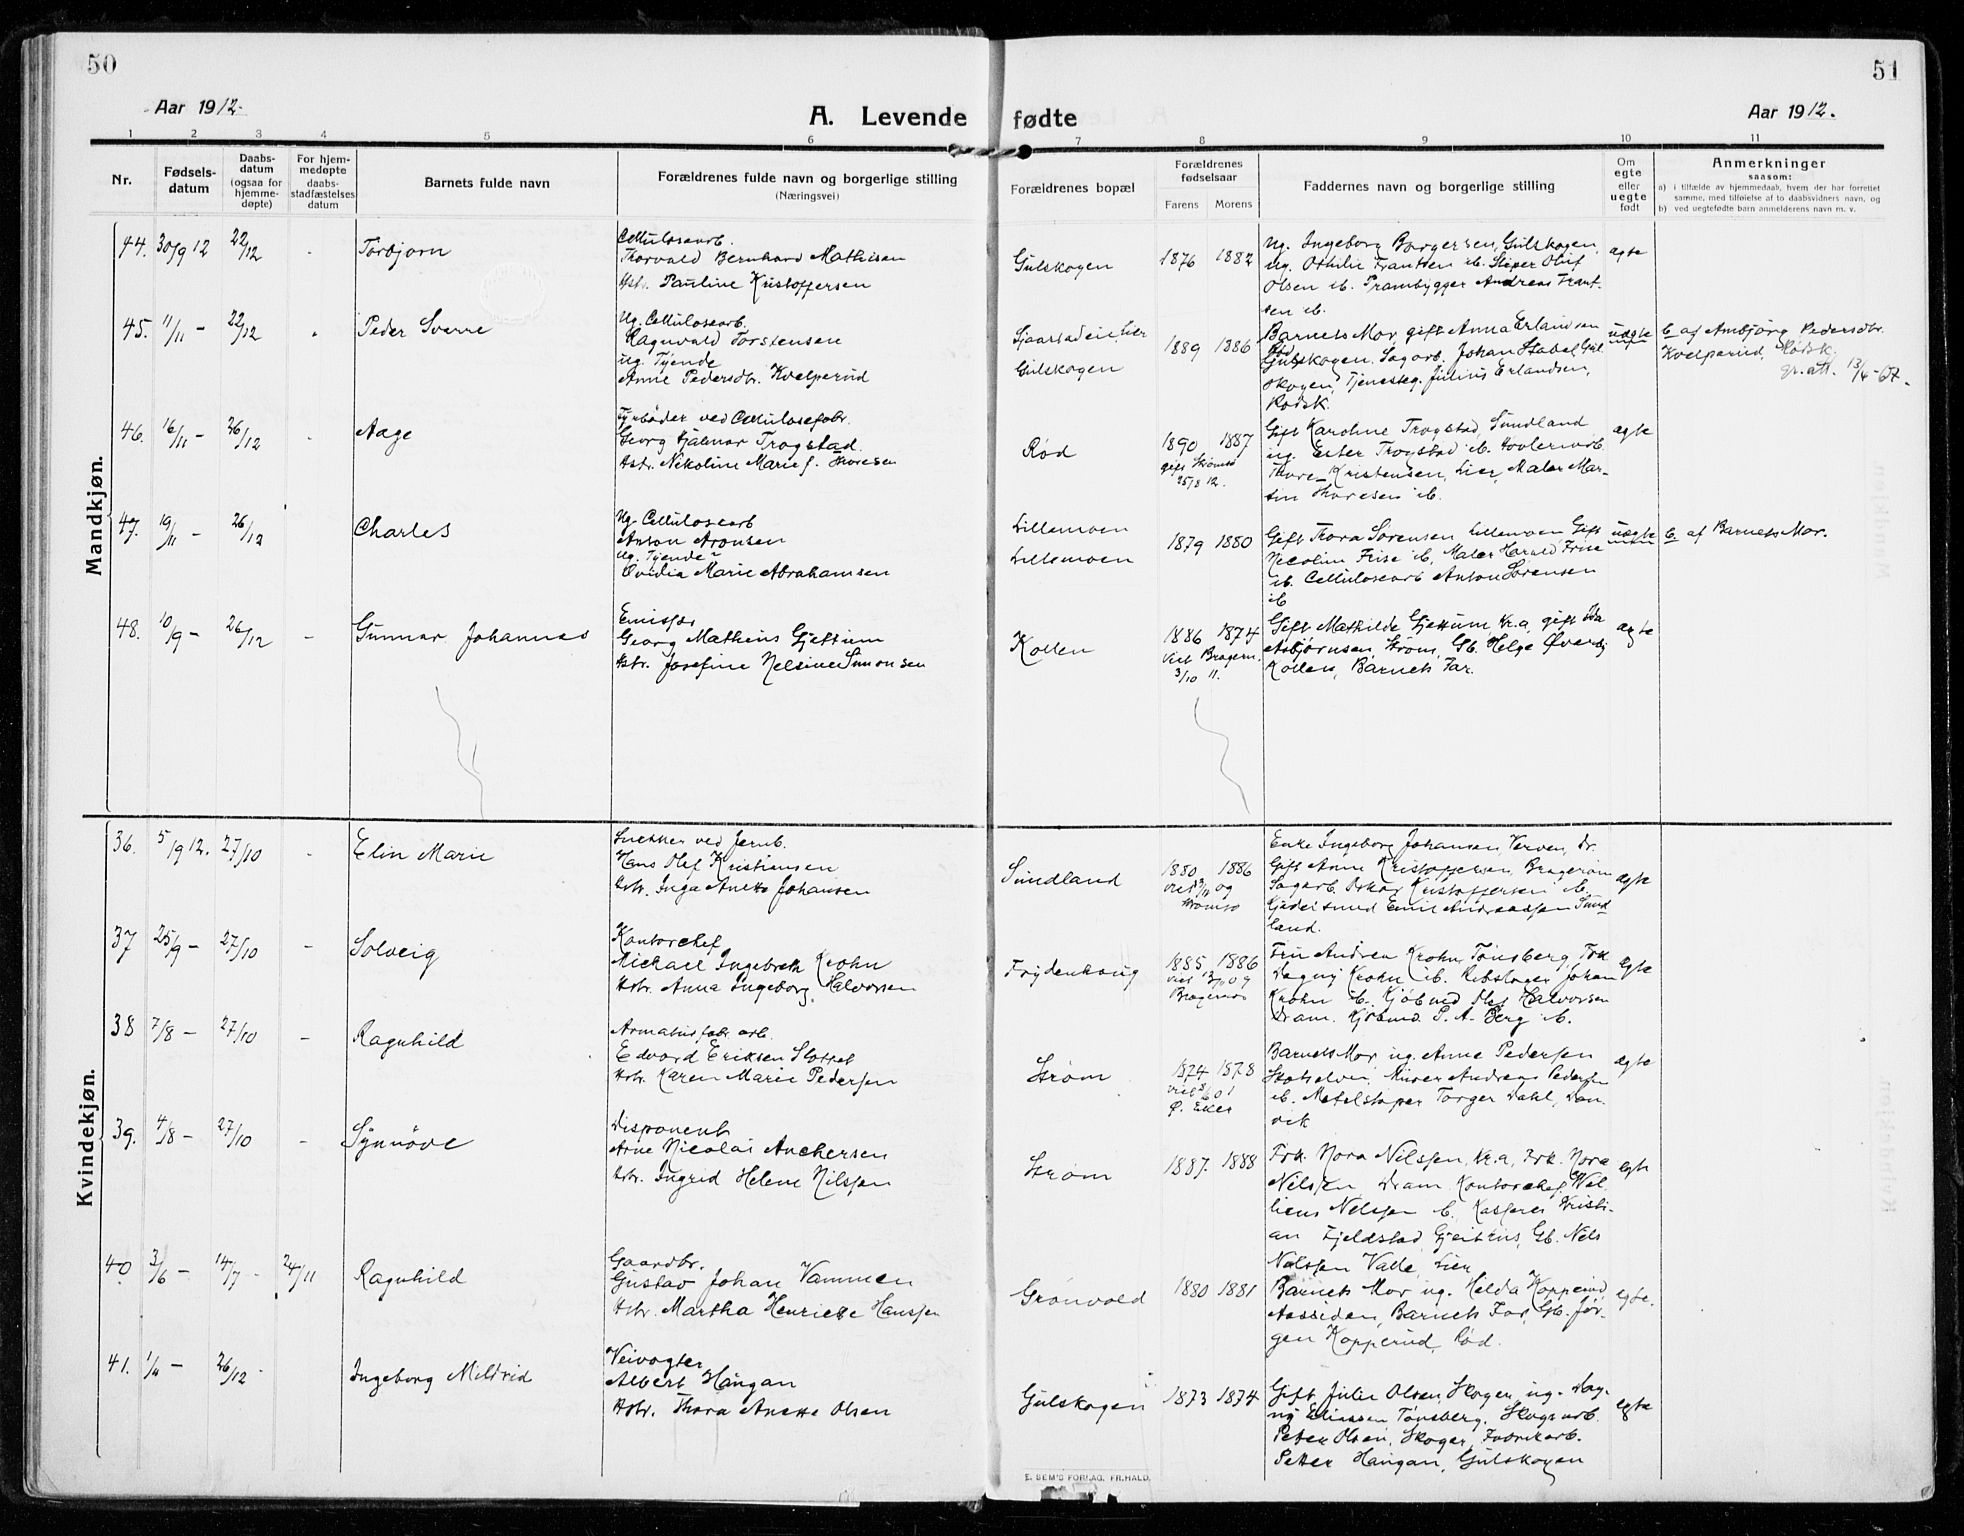 50
51
Aar 1912
A. Levende fødte
Aar 1912.
1 2 3 4 5 6 7 8 9 10 11
Nr.
Fødsels-
datum
Daabs-
datum
(ogsaa for
hjemme-
døpte)
For hjem-
medøpte
daabs-
stadfæstelses
datum
Barnets fulde navn
Forældrenes fulde navn og borgerlige stilling
(Næringsvei)
Forældrenes bopæl
Forældrenes
fødselsaar
Farens Morens
Faddernes navn og borgerlige stilling
Om
egte
eller
uegte
født
Anmerkninger
saasom:
a) i tilfælde av hjemmedaab, hvem der har forrettet
samme, med tilføielse af to daabsvidners navn, og
b) ved uegtefødte barn anmelderens navn m. v.
Mandkjøn.
44. 30/9 12 22/12 - Torbjørn
Cellulosearb.
Thorvald Bernhard Mathisen
Hstr. Pauline Kristoffersen
Gulskogen
1876 1882
Ug. Ingeborg Borgersen, Gulskogen,
ug. Othilie Frantsen ib. Sliper Oluf
Olsen ib. Prambygger Andreas Frant-
sen ib.
ægte
45. 11/11 - 22/12 - Peder Sverre
Ug. Cellulosearb.
Ragnvald Torstensen
ug. Tjende
Anne Pedersdtr. Kvelprud
Gulskogen
1889 1886
Barnets Mor, gift Anna Erlandsen
Gulskogen. Sagarb. Johan Stabel, Gul-
skogen, Tjenesteg. Julius Erlandsen,
Rødsk.
uægte
b af Ambjørg Pedersdtr.
Kvelprud, Rødsk.
13/6-67.
46. 16/11 - 26/12 - Aage
Fyrbøder ved Cellulosefabr.
Georg Hjalmar Trogstad
Hstr. Nikoline Marie f. Thoresen
Rød
1890 1887
gift Strømsø
25/8 12.
Gift Karoline Trogstad, Sundland
ug. Ester Trogstad ib. Høvleriarb.
Thore Kristensen, Lier, Maler Mar-
tin Thoresen ib.
ægte
47. 19/11 - 26/12 Charles
Ug. Cellulosearb
Anton Aronsen
Ug. Tjende
Ovidia Marie Abrahamsen
Lillemoen
Lillemoen
1879 1880
Gift Thora Sørensen Lillemoen, Gift
Nicoline Frise ib, Maler Harald Frise
ib. Cellulosearb Anton Sørensen
ib
uægte
b af Barnets Mor.
48. 10/9 - 26/12 - Gunnar Johannes
Georg Matheus Gjettum
Hstr. Josefine Nelsine Simonsen
Kollen
1886 1874
Viet Bragern.
3/10 11.
Gift Mathilde Gjettum Kr.a, gift Ida
Asbjørnsen Strøm, Gb. Helge Øverby
Kollen, Barnets Far.
ægte
Kvindekjøn.
36. 5/9 12. 27/10 - Elin Marie
Snekker ved Jernb.
Hans Olaf Kristiansen
Hstr. Inga Anette Johansen
Sundland
1880 1886
Strømsø
Enke Ingeborg Johansen, Verven, Dr.
Gift Anne Kristoffersen, Bragerøen
Sagarb. Oskar Kristoffersen ib.
Gjødelsmed Emil Andreassen Sund-
land.
ægte
37 25/9 - 27/10 - Solveig
Kontorchef
Michael Ingebreth Krohn
Hstr. Anna Ingeborg Halvorsen
Frydenhaug
1885 1886
Bragernes
Fru Andrea Krohn, Tønsberg, Frk
Dagny Krohn ib. Rebslager Johan
Krohn ib. Kjøbmd Olaf Halvorsen
Dram. Kjøbmd. P. A. Berg ib.
egte
38 7/8 - 27/10 - Ragnhild
Armaturfabr. arb.
Edvard Eriksen
Hstr. Karen Marie Pedersen
Strøm
1874 1878
Ø. Eker
Barnets Mor, ug. Anne Pedersen
Skotselven, Murer Andreas Pedersen
ib. Metalstøper Torger Dahl, Dan-
vik
ægte
39. 4/8 - 27/10 - Synnøve
Disponent
Arne Nicolai Anchersen
Hstr. Ingrid Helene Nilssen
Strøm
1887. 1888
Frk. Nora Nilssen, Kr.a, Frk. Nora
Nilssen Dram. Kontorchef Wil-
liens Nilssen ib. Kasserer Kristi-
an Fjeldstad, Gjeithus, Gb. Nils
Nilssen Valle, Lier
egte
40. 3/6 - 14/7 - 24/11 Ragnhild
Gaardbr.
Gustav Johan Vammen
Hstr. Martha Henriette Hanssen
Grønvold
1880 1881
Barnets Mor, ug. Helda Kopperud,
Aassiden, Barnets Far, Gb. Jør-
gen Kopperud, Rød.
egte.
41. 1/4 - 26/12 - Ingeborg Mildrid
Veivogter
Albert Haugan
Hstr. Thora Anette Olsen
Gulskogen
1873 1874
Gift Julie Olsen, Skoger, ug. Dag-
ny Eliassen Tønsberg, Skogsarb.
Peter Olsen, Skoger, Fabrikarb.
Petter Haugan, Gulskogen
egte
E. SEM'S FORLAG, FR.HALD.